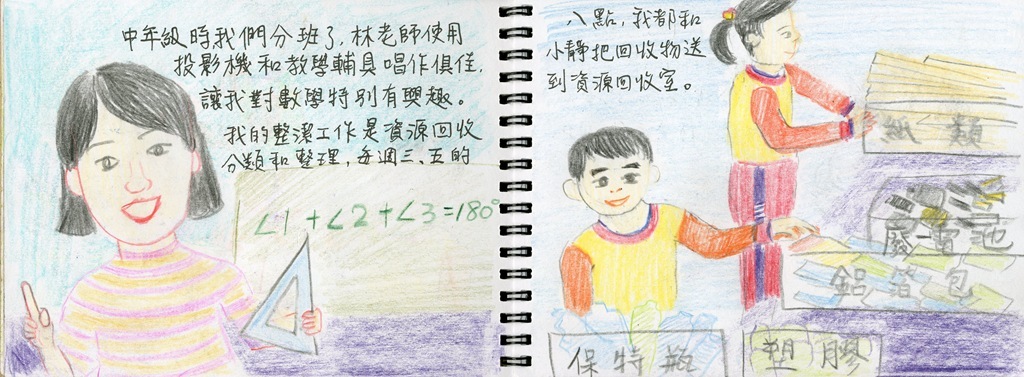 中年級時我們分班了，林老師使用
投影機和教學輔具唱作俱佳，
讓我對數學特別有興趣。
我的整潔工作是資源回收
分類和整理，每週三、五的
∠1+∠2+∠3=180°
八點，我都和
小靜把回收物送
到資源回收室。
紙類
廢電池
鋁箔包
保特瓶
塑膠